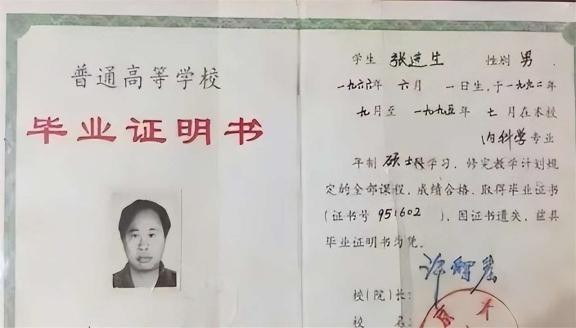 普通高等学校
毕业证明书
学生 张进生 性别 男
一九六六年 六月 一日生，于一九九二年
九月至 一九九五年 七月在本校
内科学 专业
年制 硕士段学习，修完教学计划规
定的全部课程，成绩合格，取得毕业证书
(证书号 951602 )，因证书遗失，兹具
毕业证明书为凭。
校(院)长：
校 名：